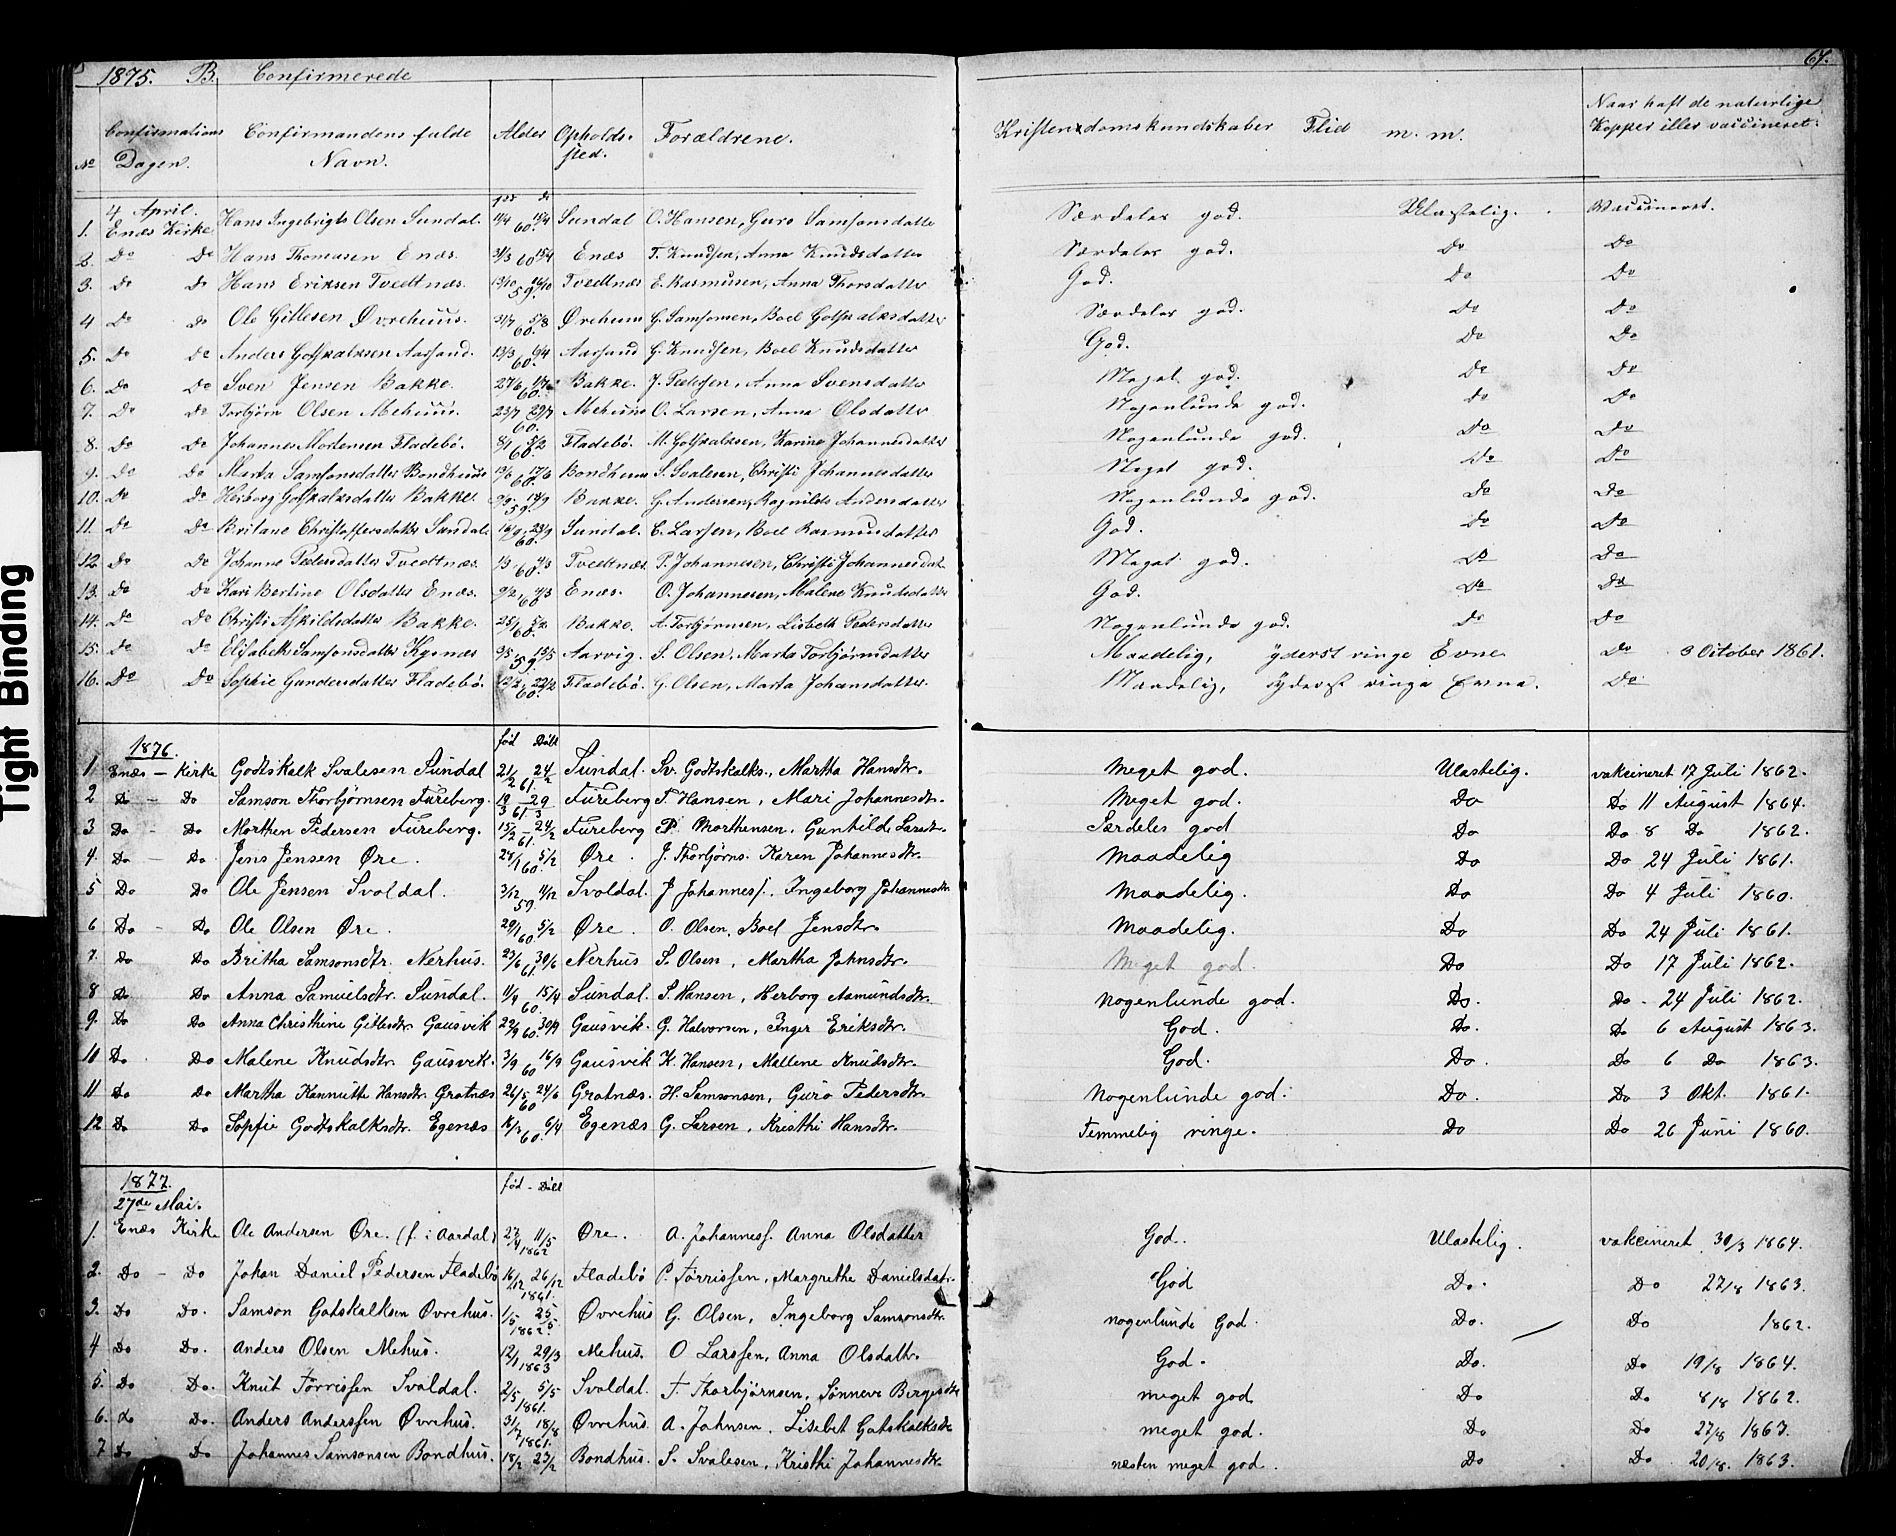 67.
1875. B. Confirmerede
No Confirmations Dagen. Confirmandens fulde Navn. Alder Opholds-sted. Forældrene. Kristendomskundskaber Flid m. m. Naar haft de naturlige Kopper eller vaccineret.
4 April.
1. Enæs Kirke Hans Ingebrigts Olsen Sundal. 11/4 60. Sundal O. Hansen, Guro Samsonsdatter Særdeles god. Ulastelig. Vaccineret.
2. Do Do Hans Thomasen Enæs. 31/3 60 15/4 Enæs T. Knudsen, Anna Knudsdatter Særdeles god. Do Do
3. Do Do Hans Eriksen Tvedtnæs. 59. Tvedtnæs E. Rasmusen, Anna Thorsdatter God. Do Do
4 Do Do Ole Gitlesen Øvrehuus. 31/7 5/8 60. Ørehuus G. Samsonsen, Boel Gotskalksdatter Særdeles god. Do Do
5. Do Do Anders Gotskalksen Aarsand. 13/3 6/4 60. Aarsand G. Knudsen, Boel Knudsdatter God. Do Do
6. Do Do Sven Jensen Bakke. 27/6 60. Bakke. J. Pedersen, Anna Svensdatter Meget god. Do Do
7. Do Do Torbjørn Olsen Mehuus. 23/7 29/7 60. Mehuus O. Larsen, Anna Olsdatter Nogenlunde god. Do Do
8. Do Do Johannes Mortensen Fladebö. 8/1 5/2 60. Fladebö. M. Gotskalksen, Karina Johannesdatter Nogenlunde god. Do Do
9. Do Do Marta Samsonsdatter Bondhuus 60. Bondhuus S. Svalesen, Christi Johannesdatter Meget god. Do Do
10. Do Do Herborg Gotskalksdatter Bakke. 59. Bakke. G. Andersen, Ragnilde Andersdatter Nogenlunde god. Do Do
11. Do Do Britane Christoffersdatter Sundal 16/9 23/9 60. Sundal. C. Larsen, Boel Rasmusdatter God. Do Do
12 Do Do Johanne Pedersdatter Tvedtnæs. 60. Tvedtnæs. P. Johannesen, Christi Johannesdat Meget god. Do Do
13. Do Do Kari Bertine Olsdatter Enæs. 9/2 4/3 60 Enæs. O. Johannesen, Malene Knudsdatter God. Do Do
14. Do Do Christi Askildsdatter Bakke. 60. Bakke. A. Torbjørnsen, Lisbeth Pedersdatter Nogenlunde god. Do Do
15. Do Do Elisabeth Samsonsdatter Kysnæs 9/5 19/5 59. Aarvig. S. Olsen, Marta Torbjørnsdatter Maadelig, yderst ringe Evne Do 3 October 1861.
16. Do Do Sophie Gundersdatter Fladebö. 12/2 22/2 60. Fladebö. G. Olsen, Marta Johansdatter. Maadelig, yderst ringe Evne. Do
1876. fød Döbt
1 Enæs - Kirke Godtskalk Svalesen Sundal 21/2 24/2 61. Sundal. Sv. Godtskalks., Martha Hansdtr. Meget god. Ulastelig. vakcineret 17 Juli 1862.
2 Do - Do Samson Thorbjørnsen Fureberg. 19/3 61 29/3 Fureberg T. Hansen, Mari Johannesdtr. Meget god. Do Do 11 August 1864.
3 Do - Do Morthen Pedersen Fureberg. 15/2 - 24/2 61. Fureberg P. Morthensen, Gunhilde Larsdtr. Særdeles god Do Do 8 Do 1862.
4. Do - Do Jens Jensen Øre. 28/1 5/2 60. Øre. J. Thorbjørns. Karen Johannesdtr. Maadelig Do Do 24 Juli 1861.
5 Do Do Ole Jensen Svoldal. 3/12 11/12 59 Svoldal. J Johannesf. Ingeborg Johannesdtr Maadelig. Do Do 4 Juli 1860.
6 Do - Do Ole Olsen Øre. 29/1 5/2 60. Øre. O. Olsen, Boel Jensdtr. Maadelig. Do Do 24 Juli 1861.
7. Do Do Britha Samsonsdtr. Nerhus. 23/6 30/6 61. Nerhus S. Olsen, Martha Johnsdtr. Meget god. Do Do 17 Juli 1862.
8 Do Do Anna Samuelsdtr. Sundal. 11/4 15/4 60. Sundal. S. Hansen, Herborg Aamundsdtr. Nogenlunde god. Do. Do - 24 Juli 1862.
9. Do Do Anna Christhine Gitlesdtr. Gausvik 22/9 60. 30/9 Gausvik. G. Halvorsen, Inger Eriksdtr. God. Do. Do 6 August 1863.
10 Do Do Malene Knudsdtr. Gausvik. 3/9 60 16/9 Gausvik K. Hansen, Mallene Knudsdtr. God. Do. Do 6 Do 1863.
11 Do Do Martha Kannutte Hansdtr. Grotnæs 26/5 24/6 60 Grotnæs. H. Samsonsen, Guro Pedersdtr. Nogenlunde god. Do. Do 3 Okt. 1861.
12 Do Do Sopfie Godtskalksdtr. Egenæs 16/3 60. 6/4 Egenæs G. Larsen, Kristhi Hansdtr. Temmelig ringe. Do Do 26 Juni 1860.
1877. fød - Döbt
27de Mai.
1. Enæs Kirke Ole Andersen Øre. (f. i Aardal) 27/4 11/5 1862 Øre. A. Johannesf. Anna Olsdatter God. Ulastelig. vakcineret 30/3 1864.
2. Do - Do Johan Daniel Pedersen Fladebö 16/12 26/12 1861. Fladebö P. Tørrisfen, Margrethe Danielsdatr. God Do. Do 27/8 1863.
3. Do Do. Samson Gotskalksen Øvrehus. 1/5 25/5 1862. Øvrehus G. Olsen, Ingeborg Samsonsdtr. nogenlunde God. Do. Do 1862.
4 Do Do. Anders Olsen Mehus. 12/1 29/3 1863 Mehus. O Larsfen, Anna Olsdattr. God. Do. Do 19/8 1864.
5. Do Do. Knut Tørrisfen Svoldal. 2/5 5/5 1861. Svoldal. T. Thorbjørnsen, Sønneve Bergesdtr meget god Do Do 8/8 1862.
6. do Do. Anders Andersfen Øvrehus. 31/7 18/8 1861. Øvrehus. A. Johnsen. Lisebet Gotskalksdtr meget god. Do Do 27/8 1863.
7 Do Do Johannes Samsonsen Bondhus. 18/2 23/2 Bondhus. S. Svalesen, Kristhi Johannesdtr. næsten meget god. Do Do 20/8. 1863.
Tight Binding